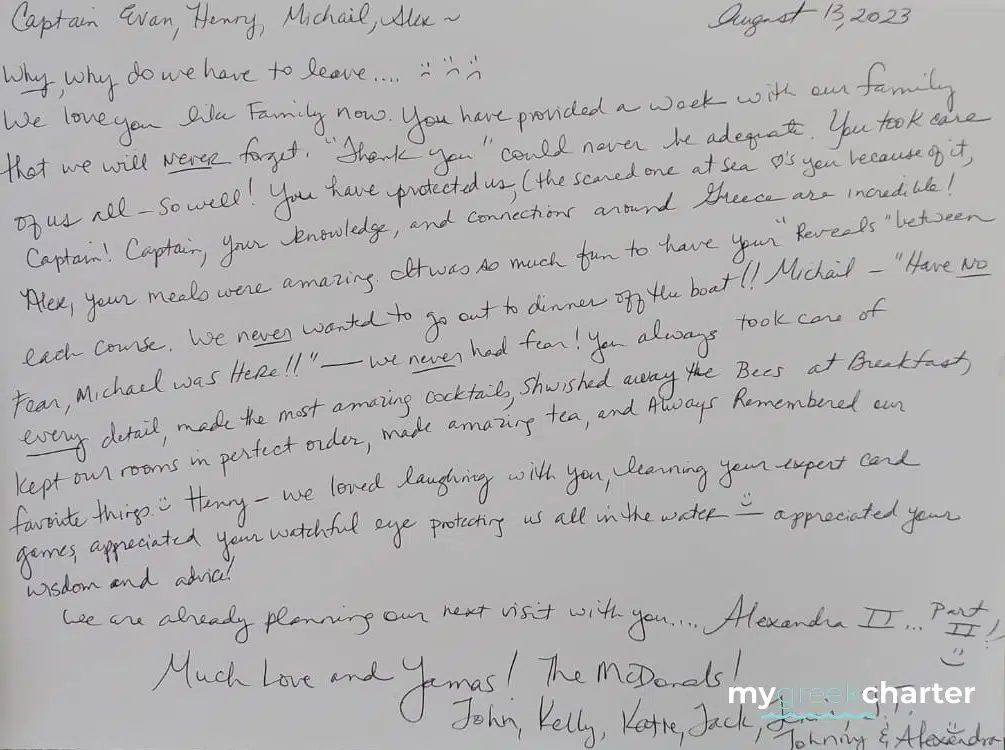 Captain Evan, Henry, Michail, Alex ~ August 13, 2023
Why, why do we have to leave.... :( :( :(
We love you like Family now. You have provided a week with our family
that we will never forget. "Thank you" could never be adequate. You took care
of us all - so well! You have protected us, (the scared one at sea ♡'s you because of it,
Captain! Captain, your knowledge, and connections around Greece are incredible!
Alex, your meals were amazing. It was so much fun to have your "Reveals" between
each course. We never wanted to go out to dinner off the boat!! Michail - "Have No
Fear, Michael was Here!!" - we never had fear! You always took care of
every detail, made the most amazing cocktails, Shwished away the Bees at Breakfast,
kept our rooms in perfect order, made amazing tea, and Always Remembered our
favorite things. :) Henry - we loved laughing with you, learning your expert card
games, appreciated your watchful eye protecting us all in the water :) - appreciated your
wisdom and advice!
We are already planning our next visit with you.... Alexandra II... Part
II!
:)
Much Love and Yamas! The McDonals!
John, Kelly, Katie, Jack,
Johnny & Alexandra
mygreekcharter